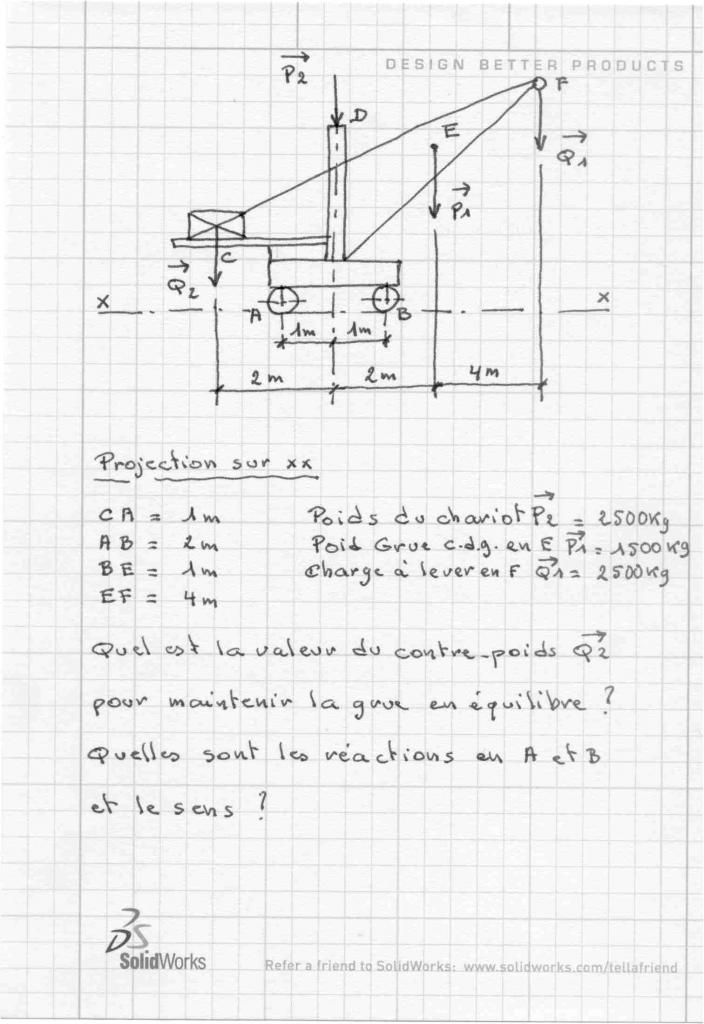 DESIGN BETTER PRODUCTS
P2
D
F
E
Q1
P1
C
Q2
x
x
A
B
1m
1m
2m
2m
4m
Projection sur xx
CA = 1m
Poids du chariot P2 = 2500Kg
AB = 2m
Poid Grue c.d.g. en E P1 = 1500Kg
BE = 1m
Charge à lever en F Q1 = 2500Kg
EF = 4m
Quel est la valeur du contre-poids Q2
pour maintenir la grue en équilibre ?
Quelles sont les réactions en A et B
et le sens ?
DS
SolidWorks
Refer a friend to SolidWorks: www.solidworks.com/tellafriend